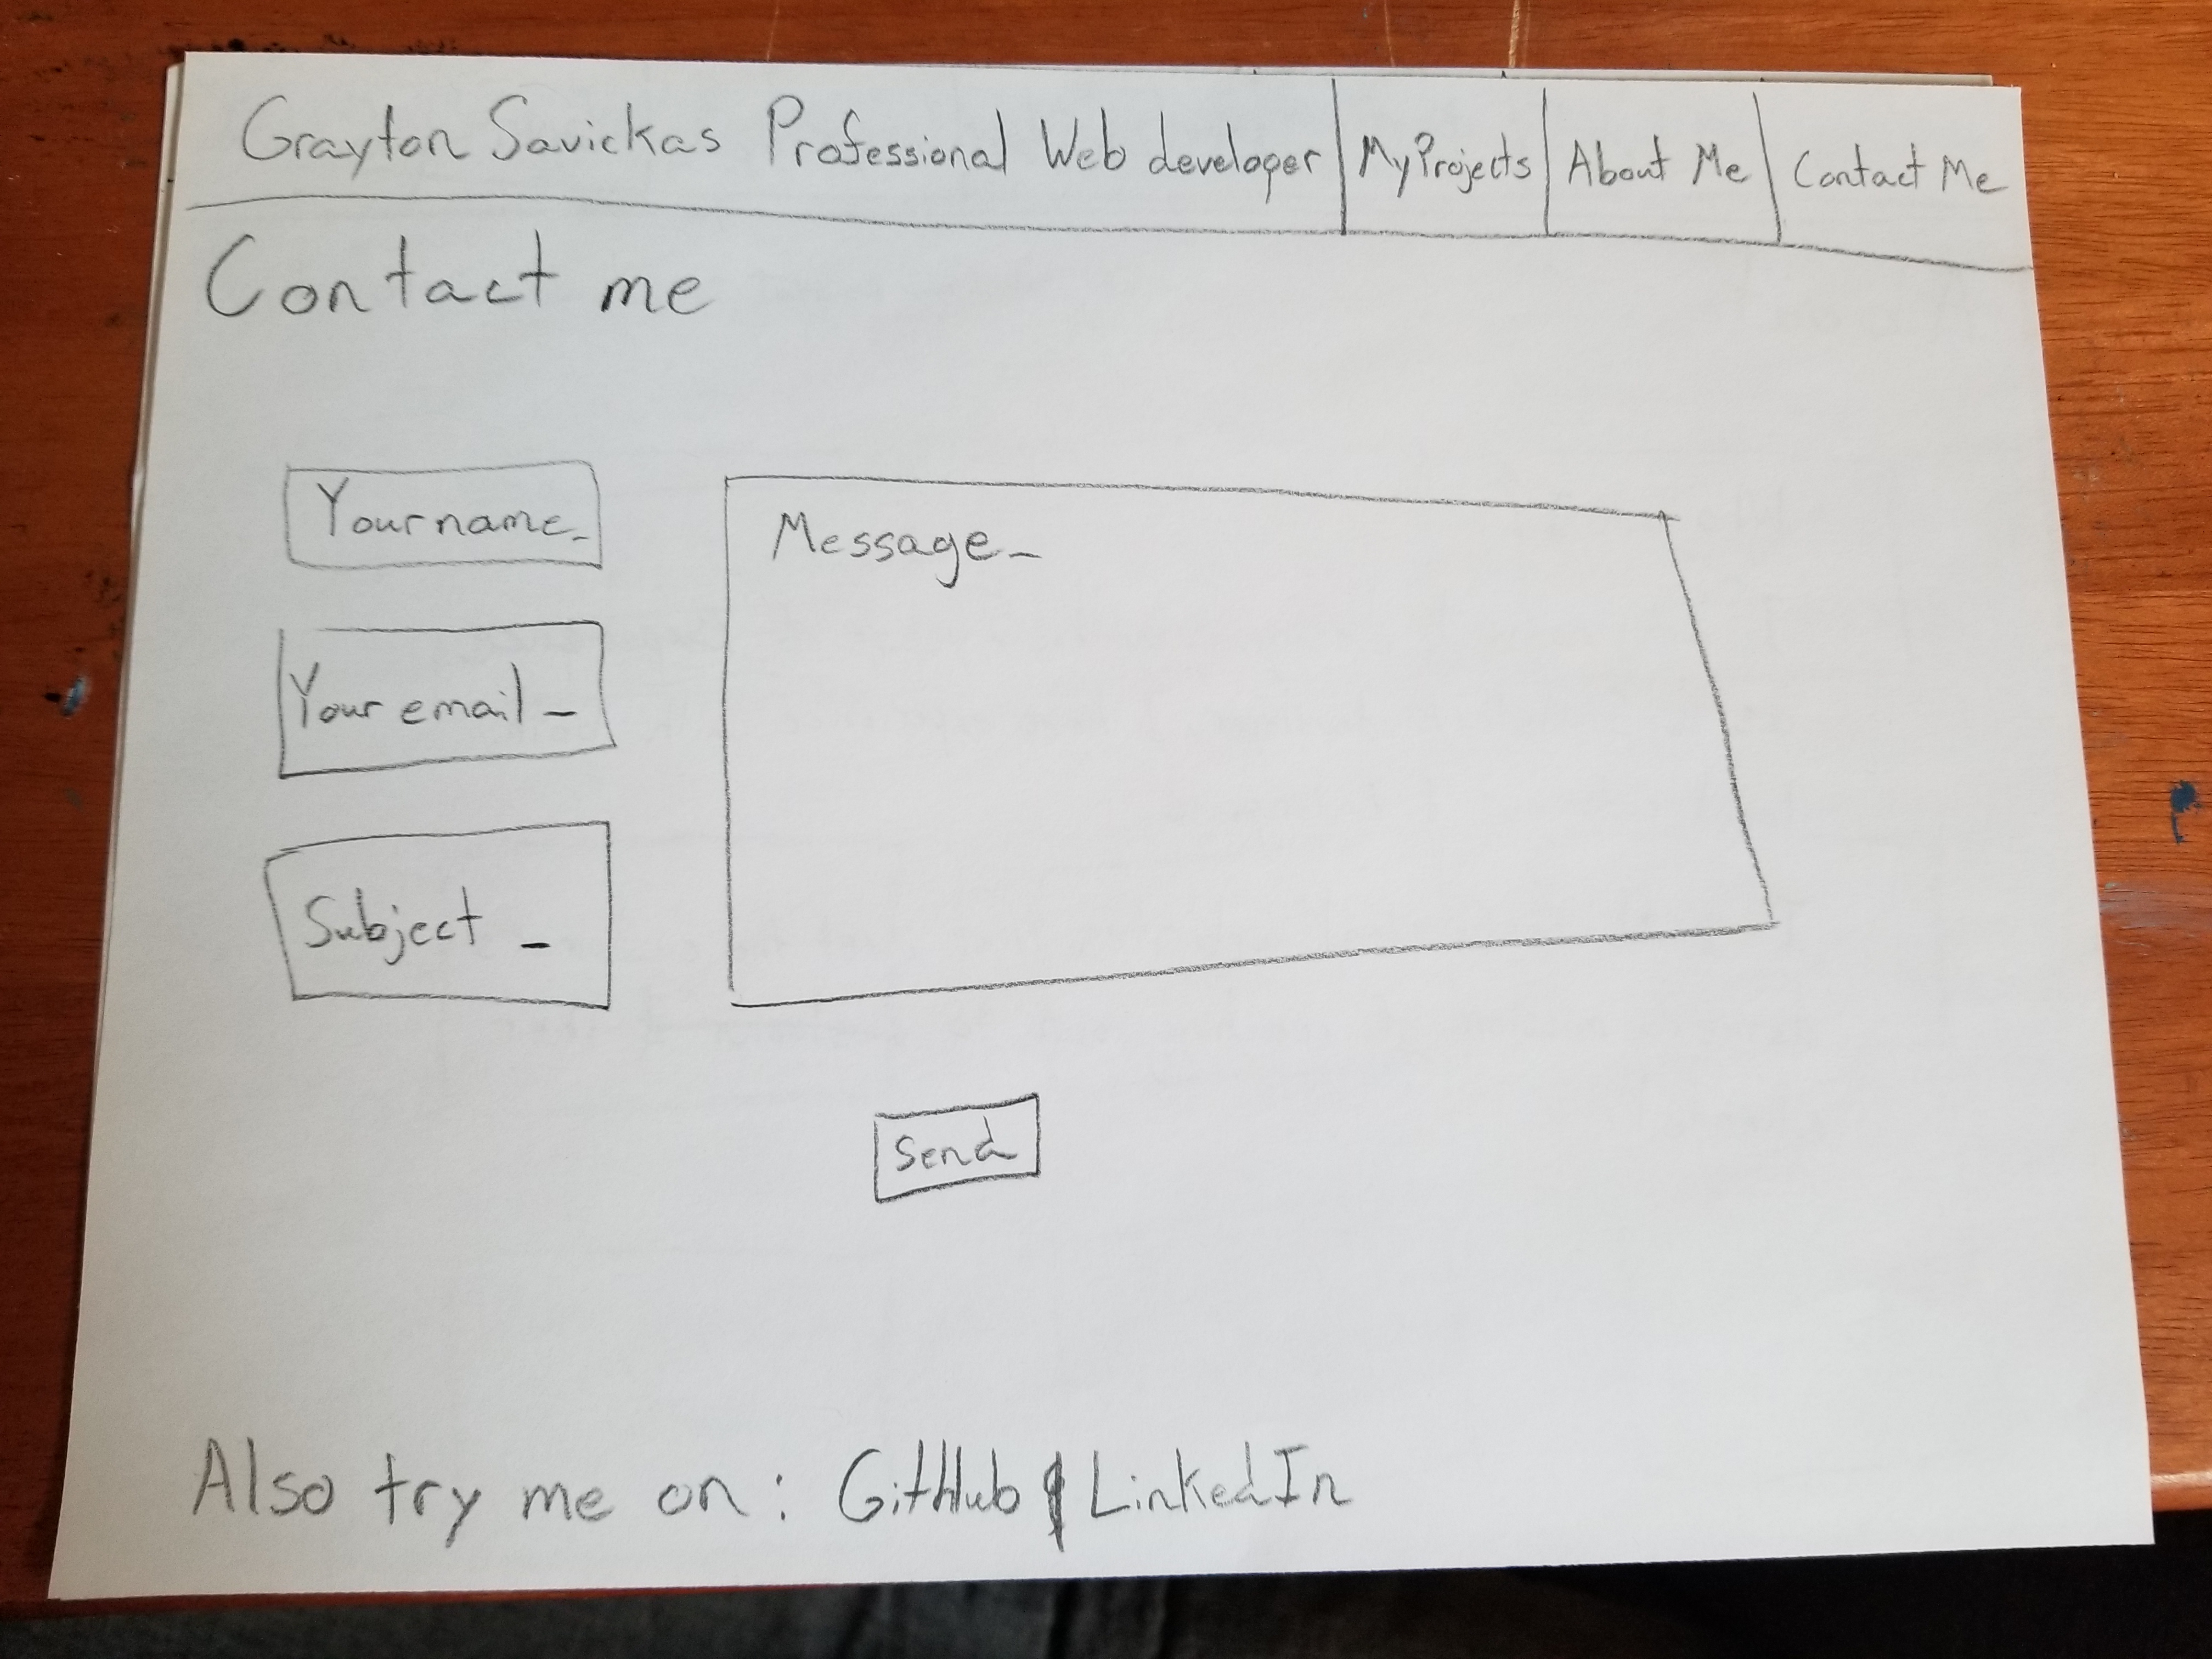 Grayton Savickas Professional Web developer My Projects About Me Contact Me
Contact me
Your name_
Message_
Your email_
Subject _
Send
Also try me on: GitHub | LinkedIn